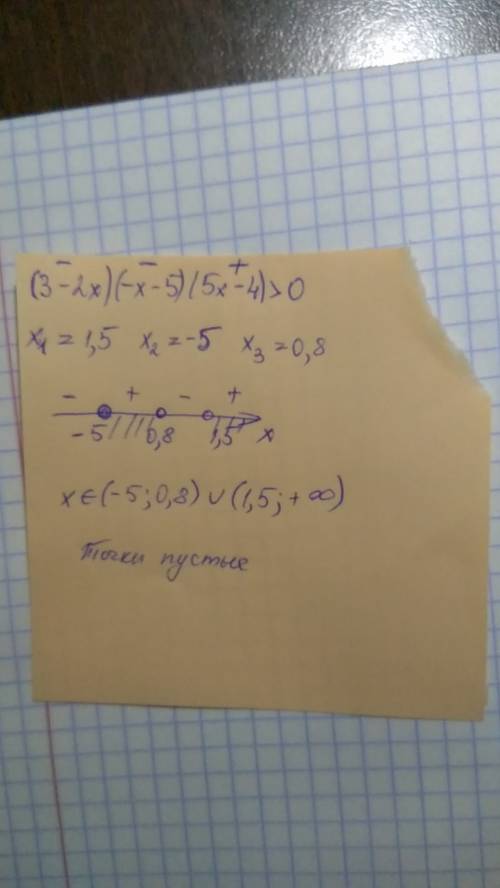 − − +
(3-2x)(-x-5)(5x-4)>0
x₁ = 1,5 x₂ = -5 x₃ = 0,8
− + − +
-5 0,8 1,5 x
x ∈ (-5; 0,8) ∪ (1,5; +∞)
Точки пустые